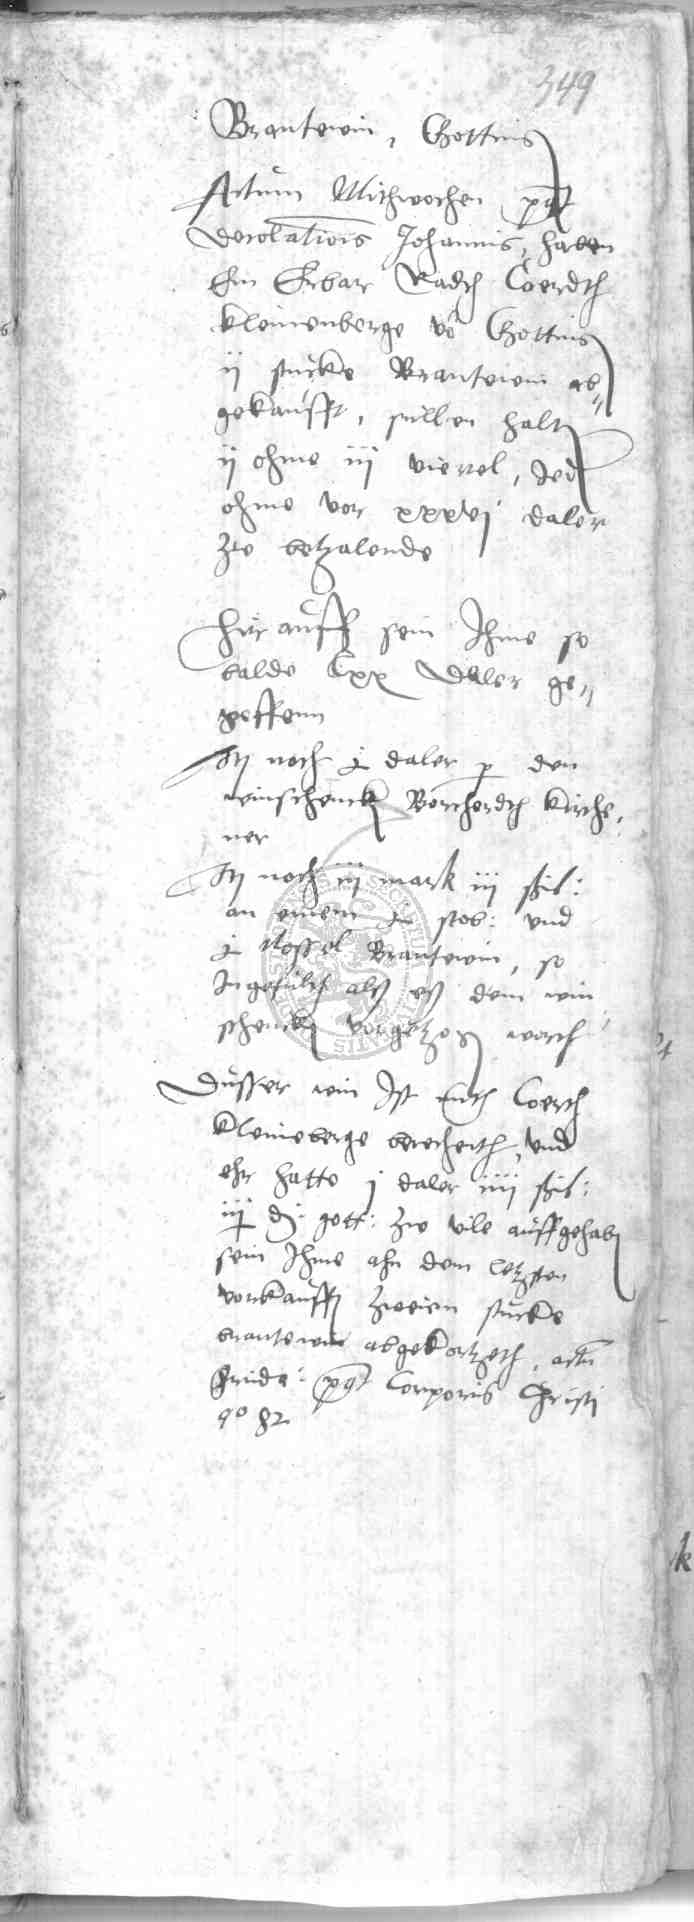 349
Brantewin, Gottins
Actum Mithwochen post
decolationis Johannis, haben
Ein Erbar Radth Coerdth
kleinenberge vo Gottins
ij stucke Brantewin ab„
gekaufft, sullen halt
ij ohme iij viertel, Jed
ohme vor xxxvj daler
zw betzalende
Hir auff sein Ihme so
balde Cxx daler ge„
geffenn
It noch j daler p den
winschenck Borcherdth kirche„
ner
It noch iij mark iij ßil:
an einem stob: und
Nossel Brantewin, so
alß eß dem win
schencken worth
Dusser win Ist mith Coerth
kleineberge berechenth, und
ehr hatte j daler iiij ßil:
iij d: gott: zw vile auffgehab
sein Ihme ahn dem letzsten
vorkauff zweien stucke
brantewin abgekortzeth, actum
frida: post Corporis Christi
ao 82